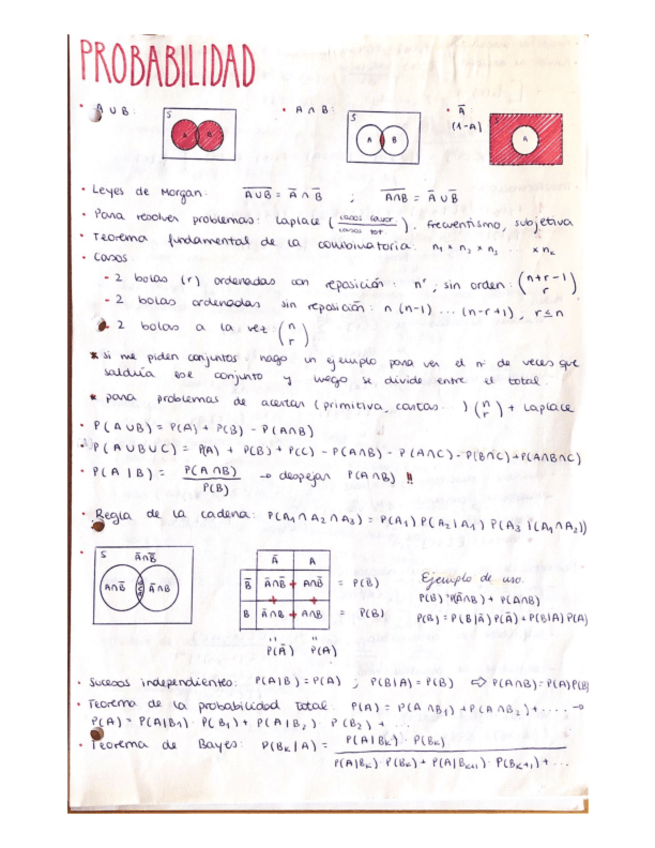 PROBABILIDAD
• A ∪ B: • A ∩ B: • Ā:
S A B S A B (1-A) S A
• Leyes de Morgan: \overline{A∪B} = Ā ∩ B̄ ; \overline{A∩B} = Ā ∪ B̄
• Para resolver problemas: Laplace (casos favor / casos tot), frecuentismo, subjetiva
• Teorema fundamental de la combinatoria: n₁ × n₂ × n₃ ... × nₖ
• Casos:
- 2 bolas (r) ordenadas con reposición: nʳ ; sin orden: (n+r-1 / r)
- 2 bolas ordenadas sin reposición: n (n-1) ... (n-r+1), r ≤ n
- 2 bolas a la vez: (n / r)
* si me piden conjuntos hago un ejemplo para ver el nº de veces que
saldría ese conjunto y luego se divide entre el total.
* para problemas de acertar (primitiva, cartas...) (n / r) + Laplace
• P(A∪B) = P(A) + P(B) - P(A∩B)
• P(A∪B∪C) = P(A) + P(B) + P(C) - P(A∩B) - P(A∩C) - P(B∩C) + P(A∩B∩C)
• P(A|B) = P(A∩B) / P(B) → despejar P(A∩B) !!
• Regla de la cadena: P(A₁∩A₂∩A₃) = P(A₁) P(A₂|A₁) P(A₃|(A₁∩A₂))
S Ā∩B̄
A∩B̄ Ā∩B
Ā A
B̄ Ā∩B̄ + A∩B̄ = P(B̄)
+ +
B Ā∩B + A∩B = P(B)
" "
P(Ā) P(A)
Ejemplo de uso:
P(B) = P(Ā∩B) + P(A∩B)
P(B) = P(B|Ā) P(Ā) + P(B|A) P(A)
• Sucesos independientes: P(A|B) = P(A) ; P(B|A) = P(B) ⇒ P(A∩B) = P(A)P(B)
• Teorema de la probabilidad total: P(A) = P(A∩B₁) + P(A∩B₂) + ... →
P(A) = P(A|B₁) · P(B₁) + P(A|B₂) · P(B₂) + ...
• Teorema de Bayes: P(Bₖ|A) = P(A|Bₖ) · P(Bₖ) / P(A|Bₖ) · P(Bₖ) + P(A|Bₖ₊₁) · P(Bₖ₊₁) + ...